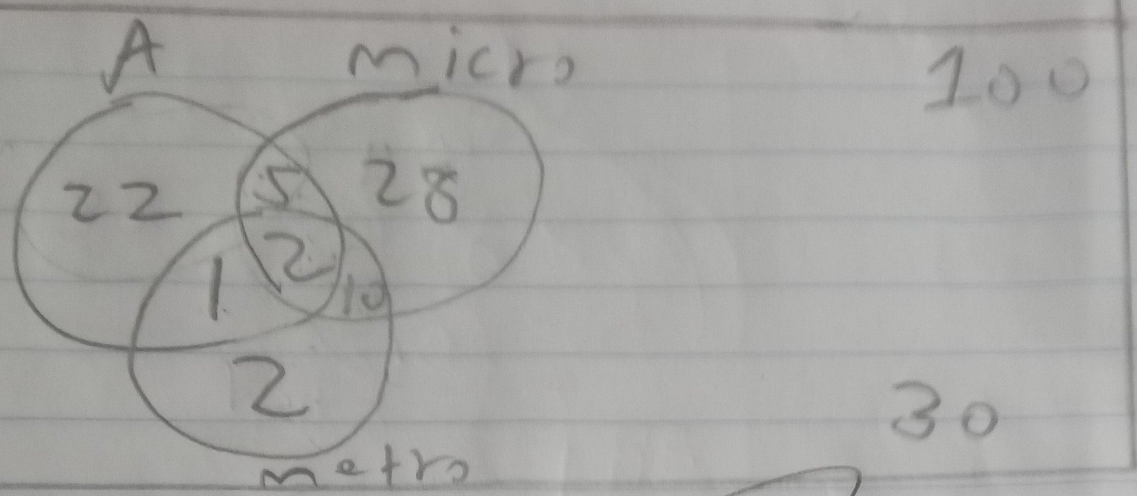 A micro 100
22 5 28
1 2 10
2 30
metro